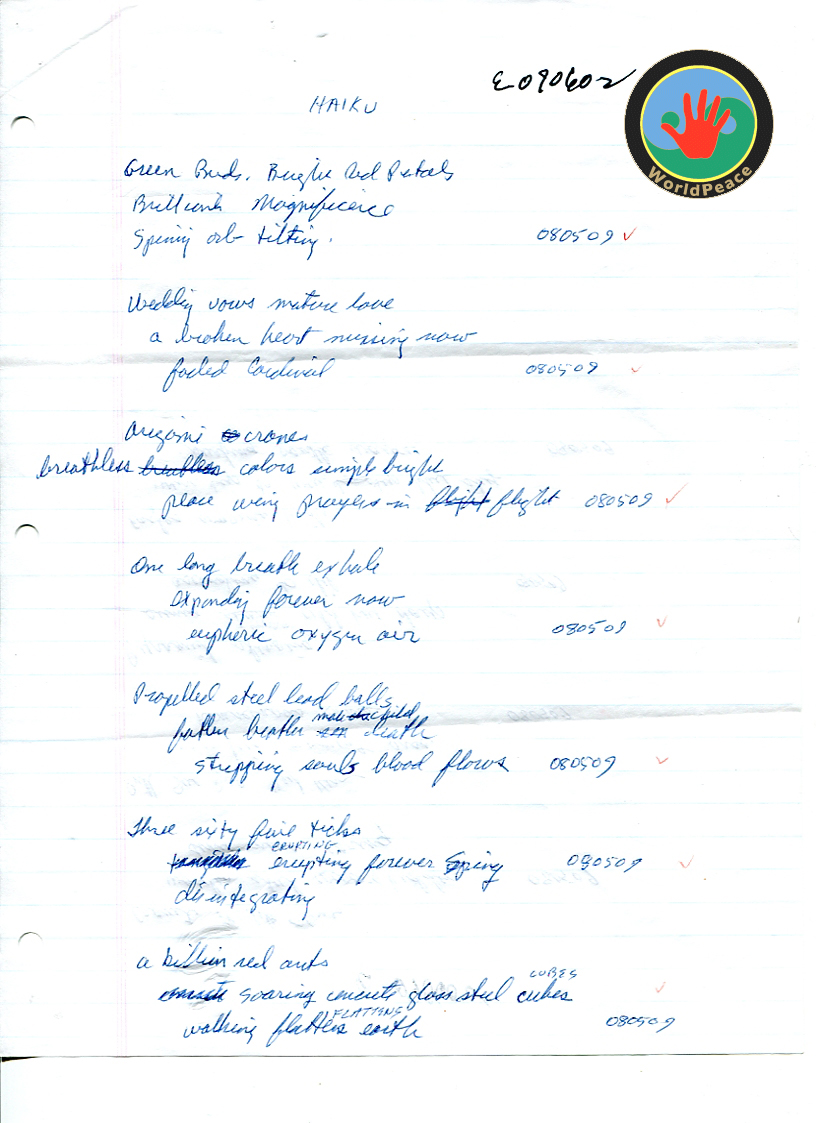 E090602
HAIKU
WorldPeace
Green Buds. Bright red Petals
Brilliant Magnificence
Spining orb tilting.
080509 ✓
Wedding vows mature love
a broken heart missing now
faded Cardinal
080509 ✓
Origami cranes
breathless colors simple bright
peace wing prayers in flight flight 080509 ✓
One long breath exhale
expanding forever now
euphoric oxygen air
080509 ✓
Propelled steel lead balls
child
death
stripping souls blood flows 080509 ✓
Three sixty five ticks
ERUPTING
erupting forever Spring 080509 ✓
disintegrating
a billion red ants
CUBES
soaring concrete glass steel cubes ✓
FLATTENS
walking flattens earth
080509